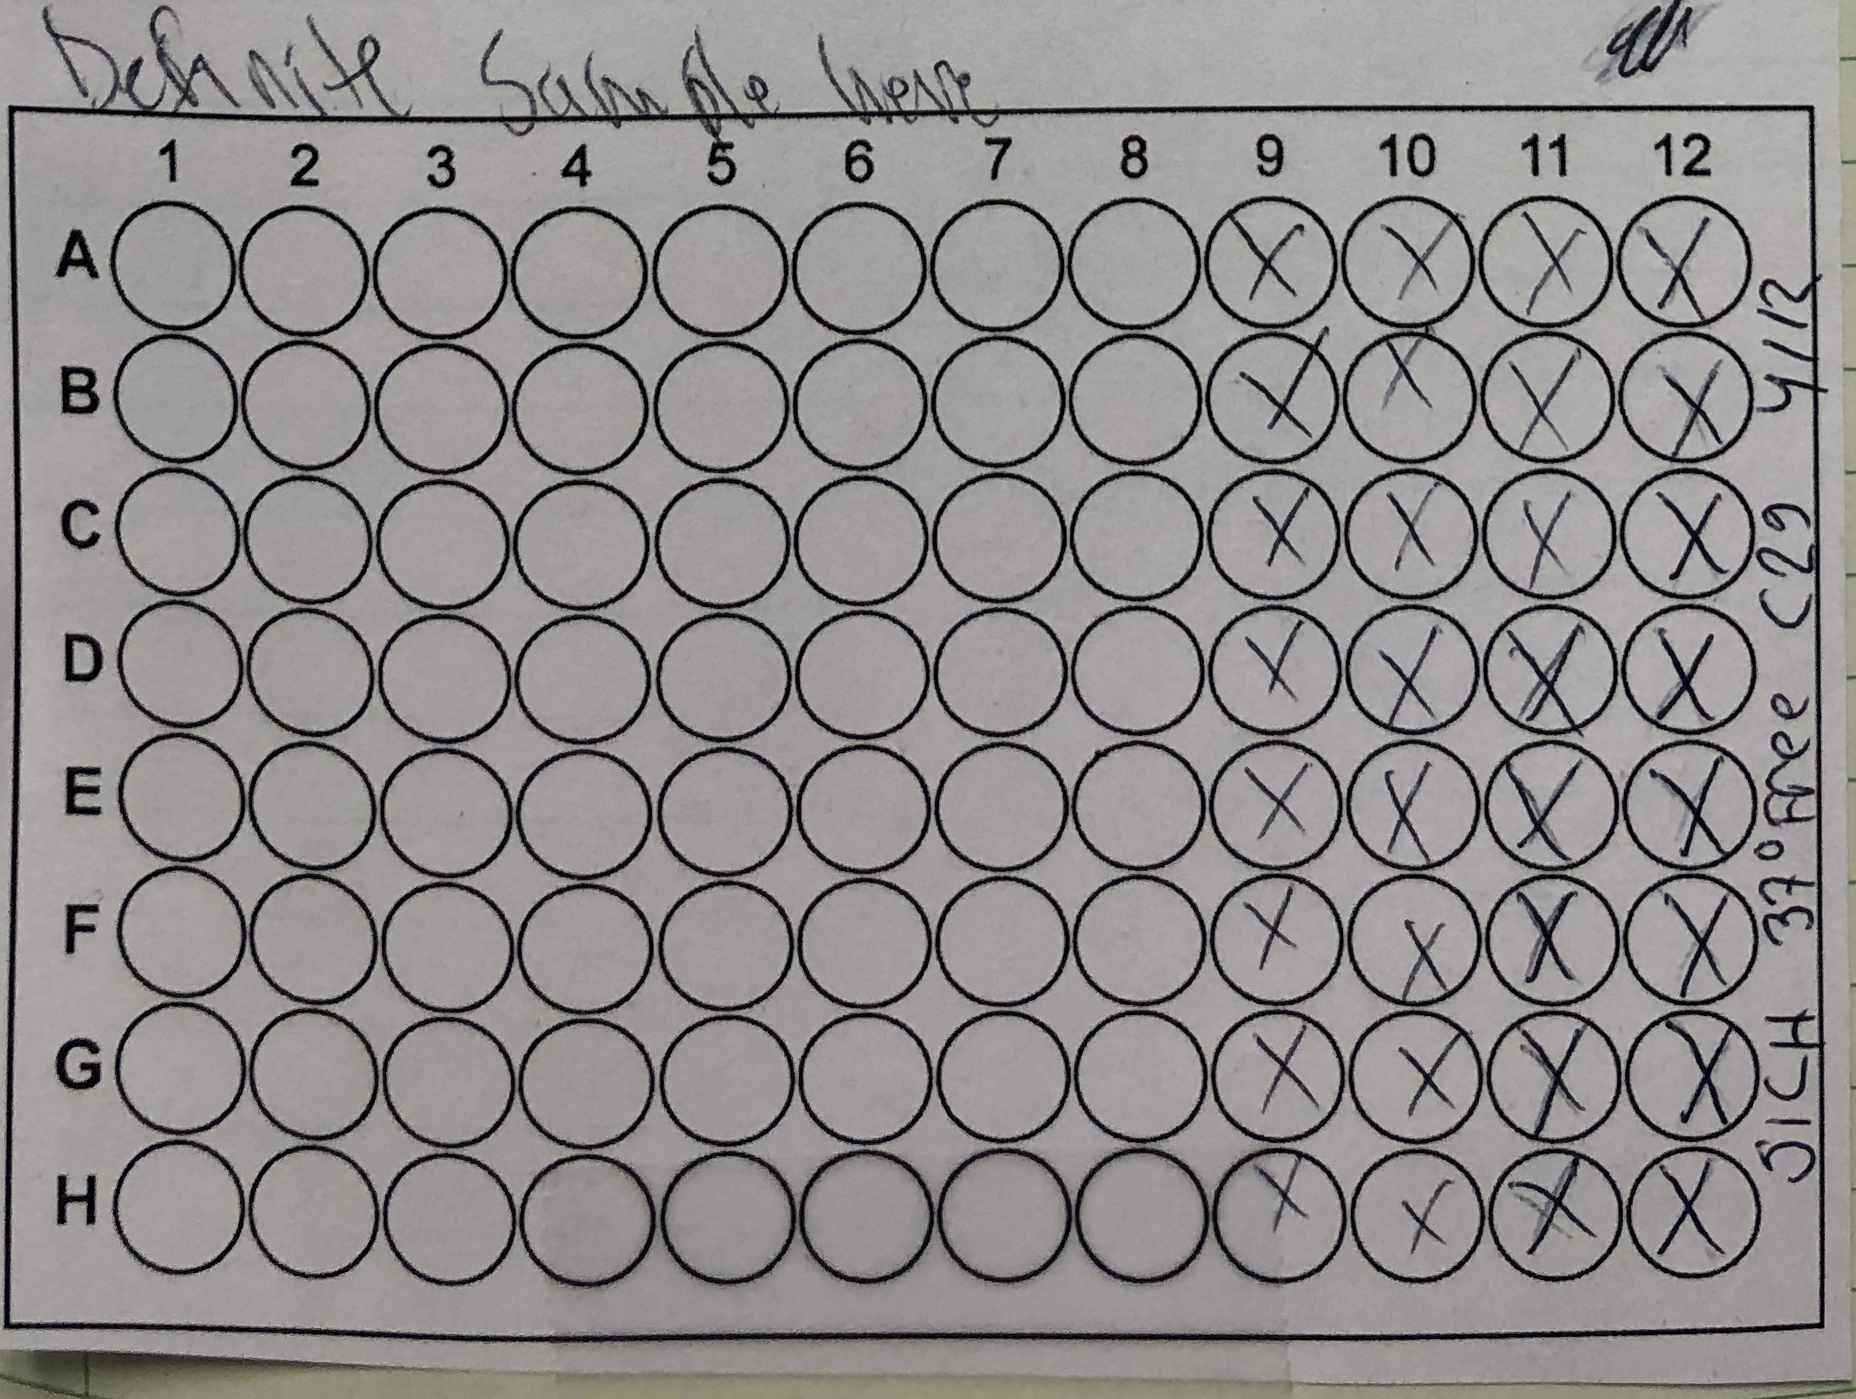 Definite Sample here
1 2 3 4 5 6 7 8 9 10 11 12
A X X X X
B X X X X
C X X X X
D X X X X
E X X X X
F X X X X
G X X X X
H X X X X
37° Free C29 4/12